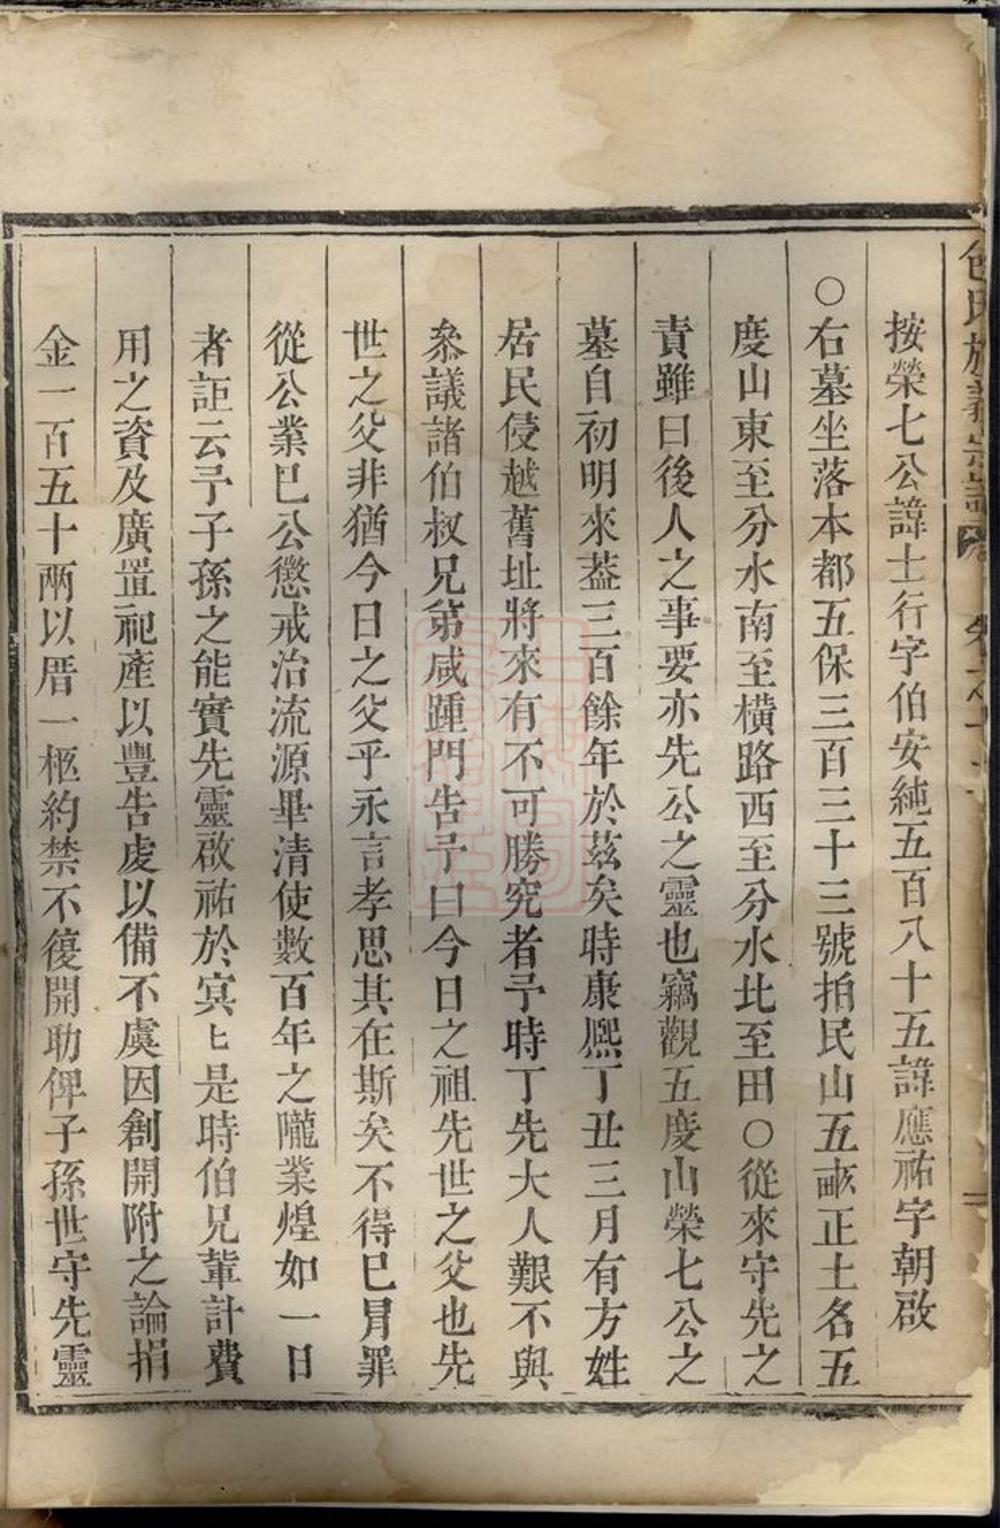 按榮七公諱士行字伯安純五百八十五諱應祐字朝啟
○右墓坐落本都五保三百三十三號拍民山五畝正土名五
度山東至分水南至橫路西至分水北至田○從來守先之
責雖曰後人之事要亦先公之靈也竊觀五度山榮七公之
墓自初明來葢三百餘年於茲矣時康熈丁丑三月有方姓
居民侵越舊址將來有不可勝究者予時丁先大人艱不與
叅議諸伯叔兄弟咸踵門告予曰今日之祖先世之父也先
世之父非猶今日之父乎永言孝思其在斯矣不得已冐罪
從公業已公懲戒治流源畢清使數百年之隴業煌如一日
者詎云予子孫之能實先靈啟祐於㝠匕是時伯兄軰計費
用之資及廣置祀產以豐告虔以備不虞因創開附之論捐
金一百五十兩以厝一柩約禁不復開助俾子孫世守先靈